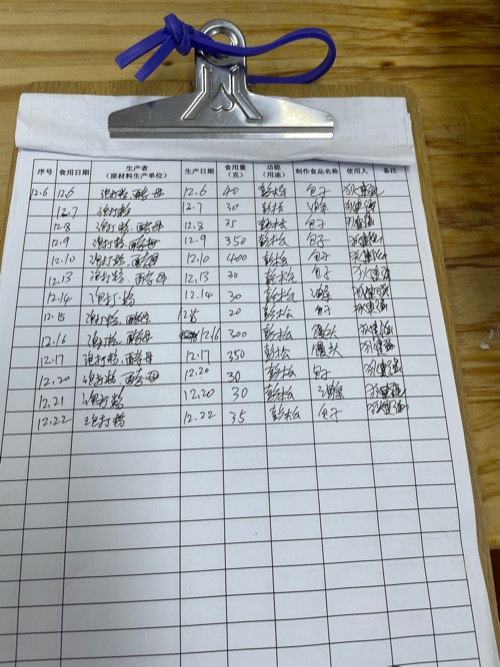 序号 食用日期 生产者（原材料生产单位） 生产日期 食用量（克） 功能（用途） 制作食品名称 使用人 备注
12.6 12.6 泡打粉、酵母 12.6 40 膨松 包子
12.7 泡打粉 12.7 30 膨松 油条
12.8 泡打粉、酵母 12.8 35 膨松 包子
12.9 泡打粉、酵母 12.9 350 膨松 包子
12.10 泡打粉、酵母 12.10 400 膨松 包子
12.13 泡打粉、酵母 12.13 30 膨松 包子
12.14 泡打粉 12.14 30 膨松 油条
12.15 泡打粉、酵母 20 膨松 包子
12.16 泡打粉、酵母 12.16 300 膨松 馒头
12.17 泡打粉、酵母 12.17 350 膨松 馒头
12.20 泡打粉、酵母 12.20 30 膨松 包子
12.21 泡打粉 12.20 30 膨松 油条
12.22 泡打粉 12.22 35 膨松 包子